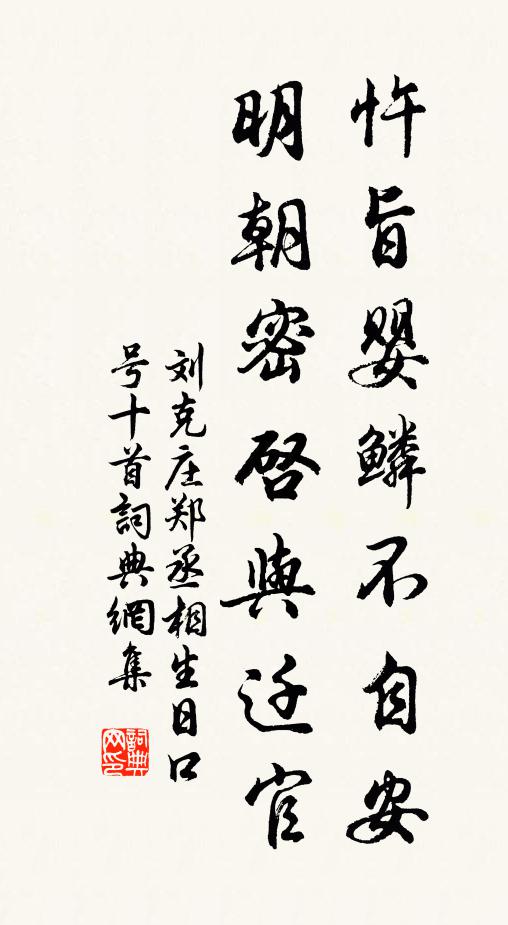 忤旨婴鳞不自安
明朝密启与迁官
刘克庄郑丞相生日口
号十首詞典網集
詞典
网印